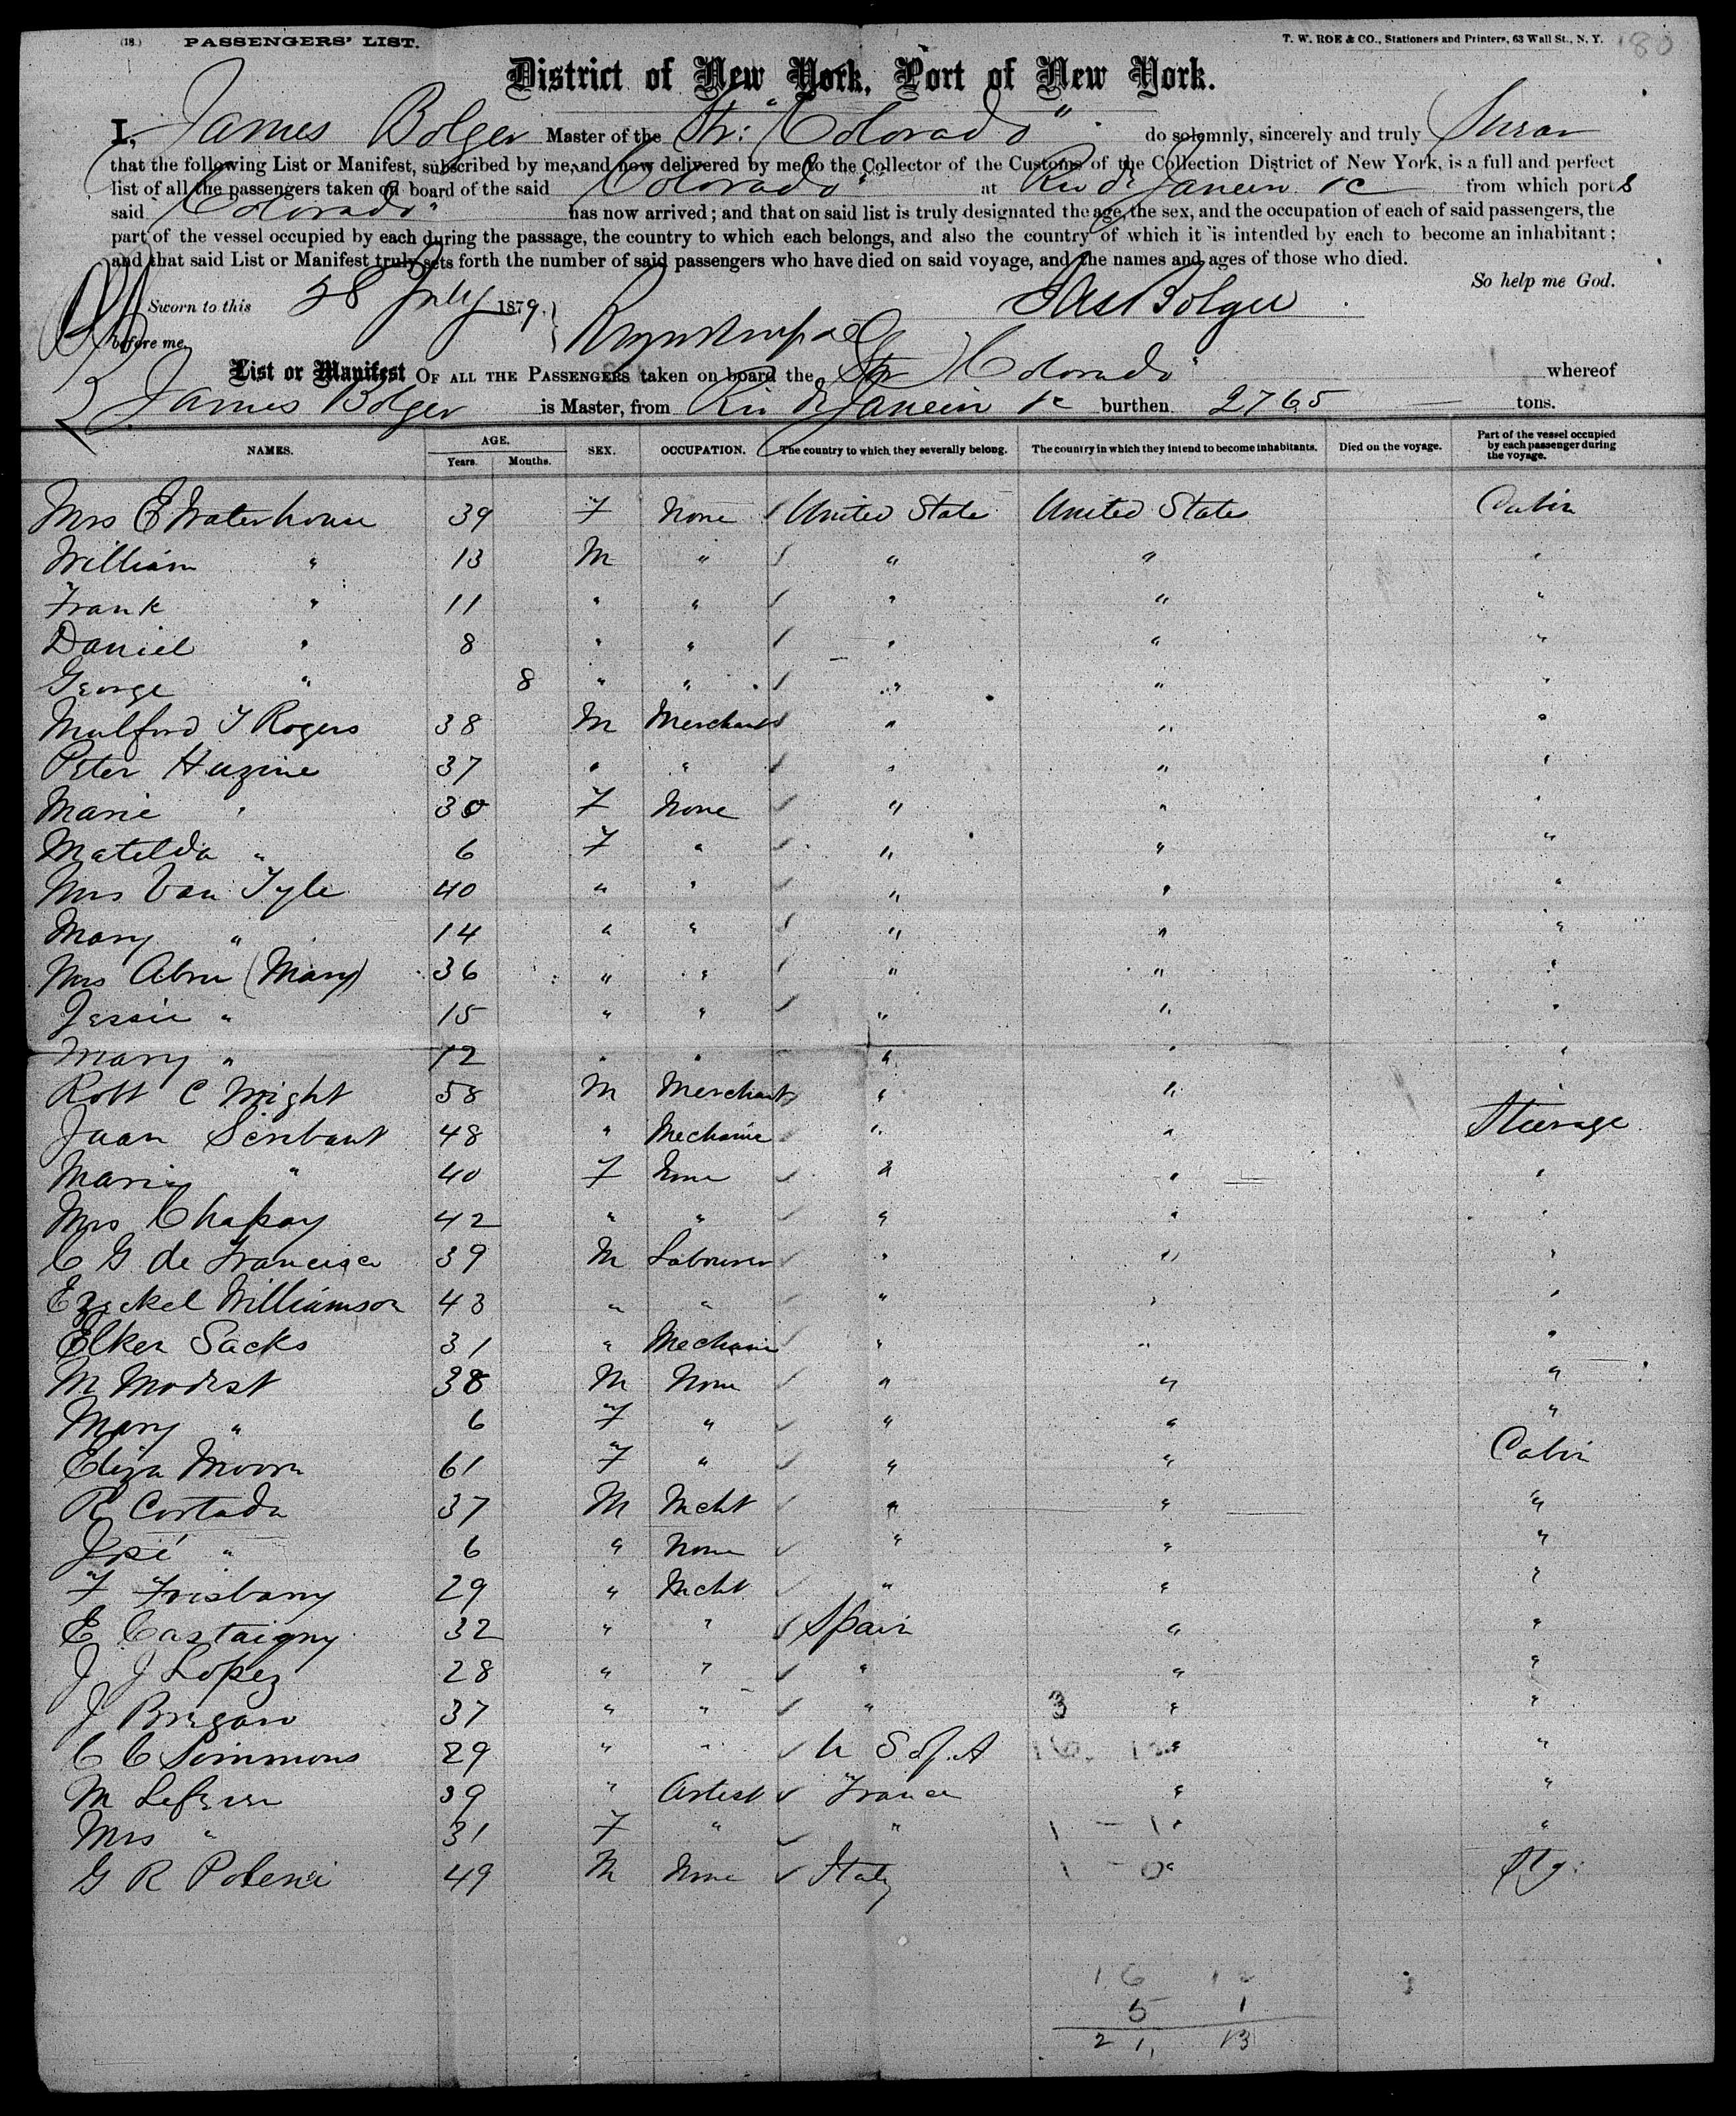 (18.) PASSENGERS' LIST. T. W. ROE & CO., Stationers and Printers, 63 Wall St., N. Y. 80
District of New York, Port of New York.
I, James Bolger Master of the Str: "Colorado" do solemnly, sincerely and truly Swear
that the following List or Manifest, subscribed by me, and now delivered by me to the Collector of the Customs of the Collection District of New York, is a full and perfect
list of all the passengers taken on board of the said "Colorado" at Rio de Janeiro &c from which ports
said "Colorado" has now arrived; and that on said list is truly designated the age, the sex, and the occupation of each of said passengers, the
part of the vessel occupied by each during the passage, the country to which each belongs, and also the country of which it is intended by each to become an inhabitant;
and that said List or Manifest truly sets forth the number of said passengers who have died on said voyage, and the names and ages of those who died.
So help me God.
Sworn to this 28 July 1879. Jas Bolger
before me
List or Manifest OF ALL THE PASSENGERS taken on board the Str "Colorado" whereof
James Bolger is Master, from Rio de Janeiro &c burthen 2765 tons.
NAMES. AGE. Years. Months. SEX. OCCUPATION. The country to which they severally belong. The country in which they intend to become inhabitants. Died on the voyage. Part of the vessel occupied by each passenger during the voyage.
Mrs E Waterhouse 39 F None United State United States Cabin
William " 13 M " " " "
Frank " 11 " " " " "
Daniel " 8 " " " " "
George " 8 " " " " "
Mulford T Rogers 38 M Merchant " " "
Peter Huzine 37 " " " " "
Marie " 30 F None " " "
Matilda " 6 F " " " "
Mrs Van Tyle 40 " " " " "
Mary " 14 " " " " "
Mrs Abru (Mary) 36 " " " " "
Jessie " 15 " " " " "
Mary " 12 " " " " "
Robt C Wright 58 M Merchant " " "
Juan Scribant 48 " Mechanic " " Steerage
Maria " 40 F None " " "
Mrs Chapay 42 " " " " "
C G de Francisco 39 M Labourer " " "
Ezeckel Williamson 43 " " " " "
Elker Sacks 31 " Mechanic " " "
M Modest 38 M None " " "
Mary " 6 F " " " "
Eliza Moore 61 F " " " Cabin
R Cortada 37 M Mcht " " "
José " 6 " None " " "
F Frisbany 29 " Mcht " " "
E Castaigny 32 " " Spain " "
J J Lopez 28 " " " " "
J Bregaro 37 " " " 3 " "
C C Simmons 29 " " U S of A " "
M Lefever 39 " Artist France " "
Mrs " 31 F " " 1 - 1 " "
G R Poleni 49 M None Italy 1 - 0 " Stg:
16 12
5 1
21, 13